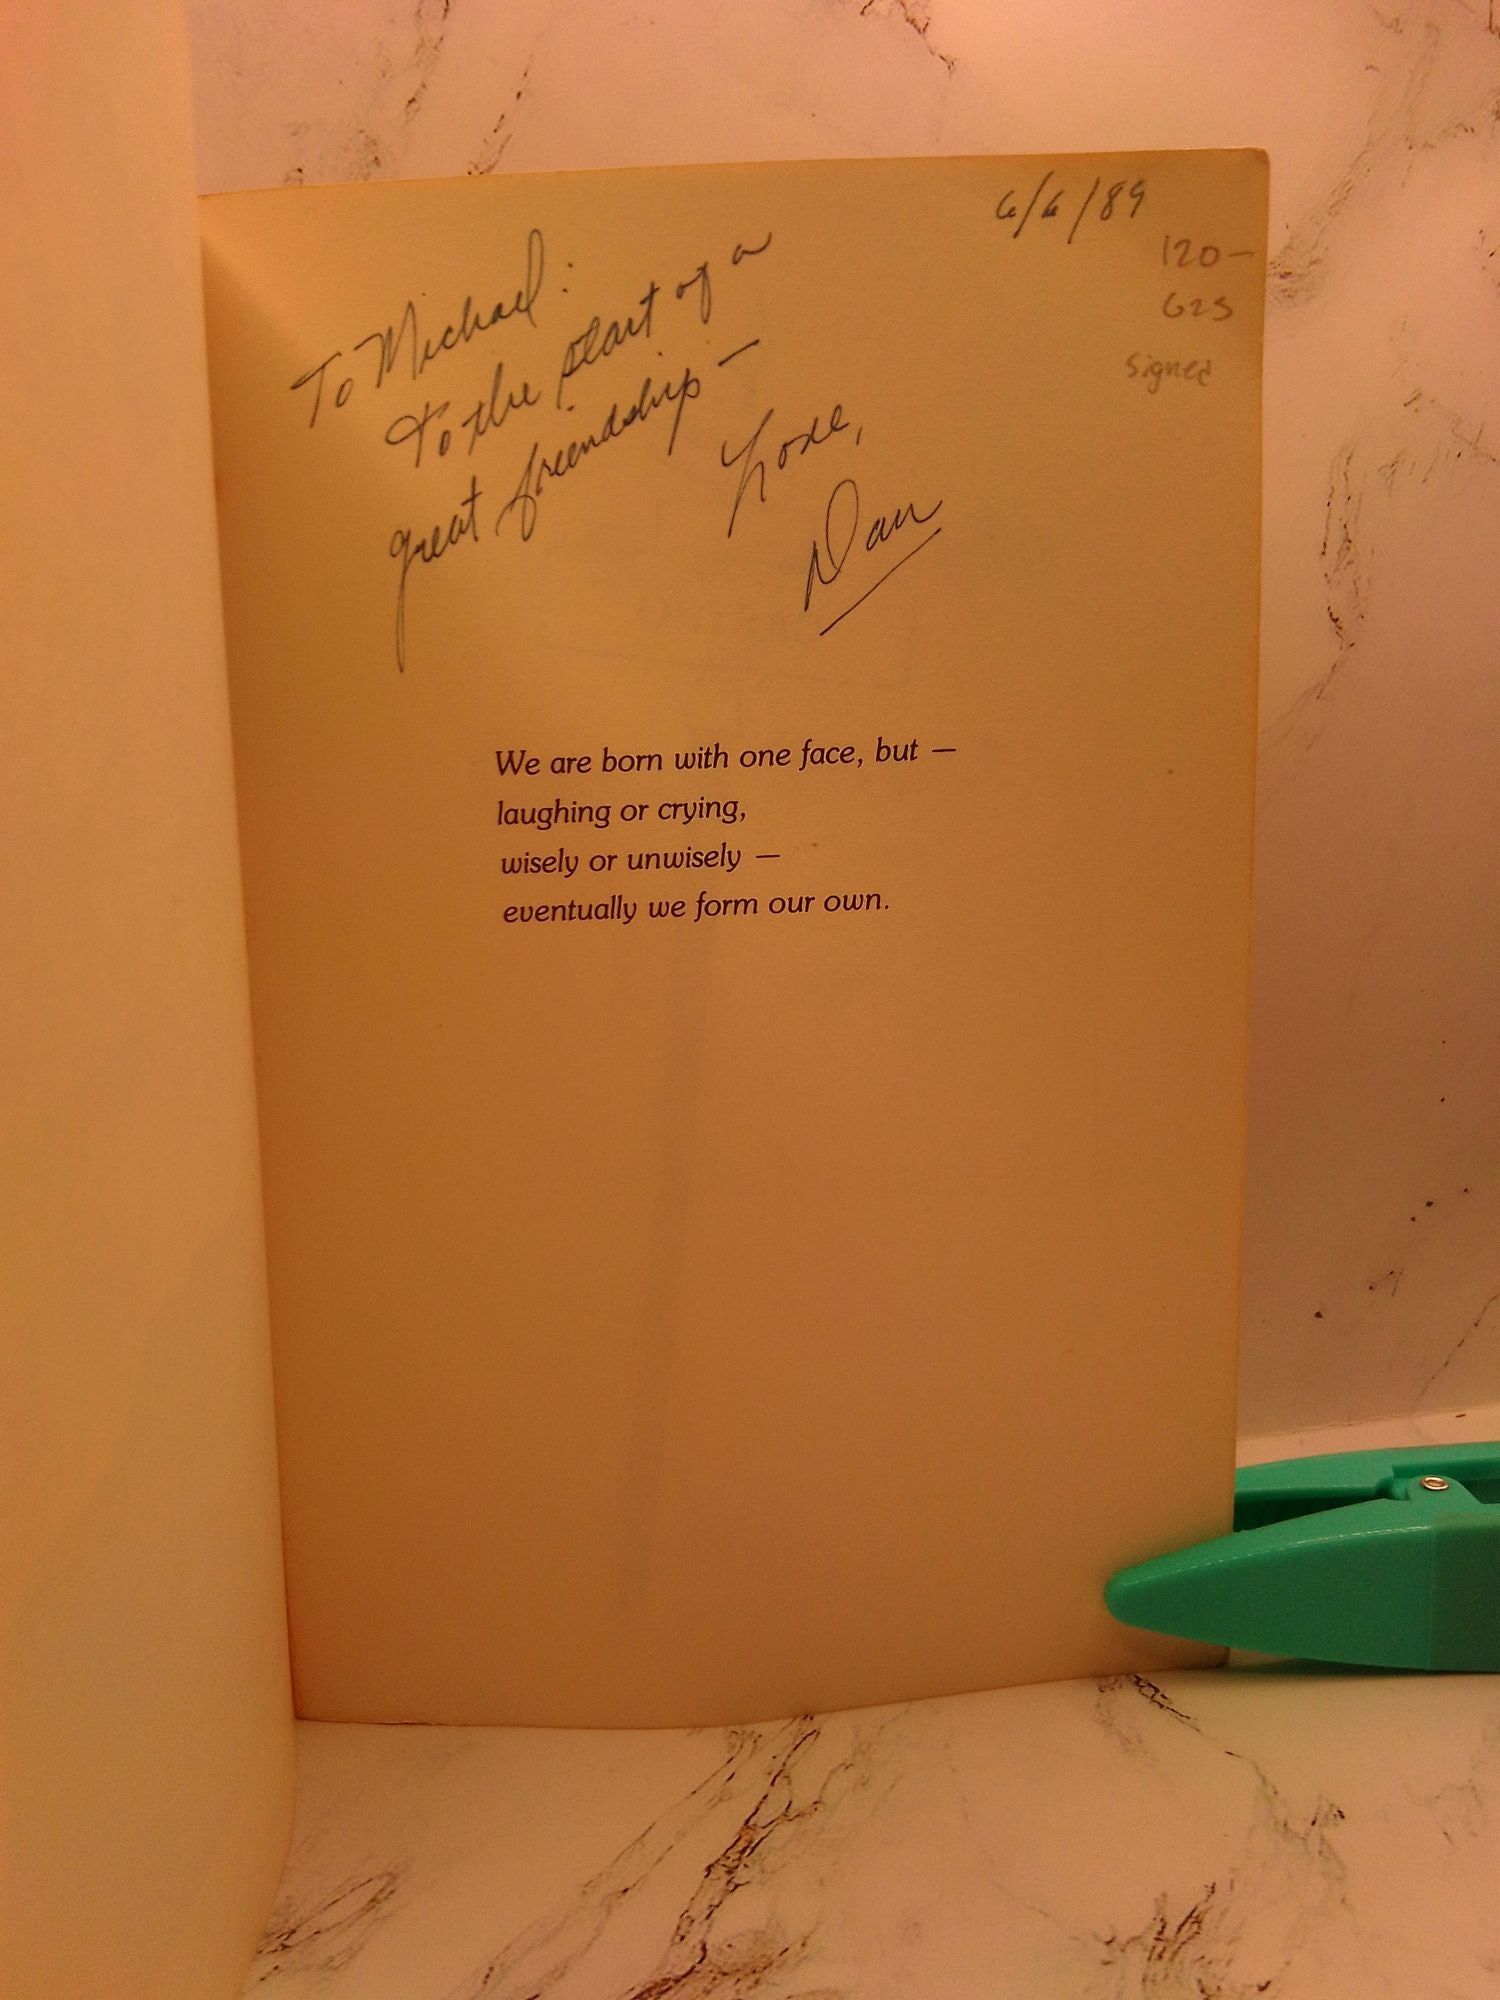 6/6/89
120-
G2S
signed
To Michael:
To the start of a
great friendship —
Love,
Dan
We are born with one face, but —
laughing or crying,
wisely or unwisely —
eventually we form our own.